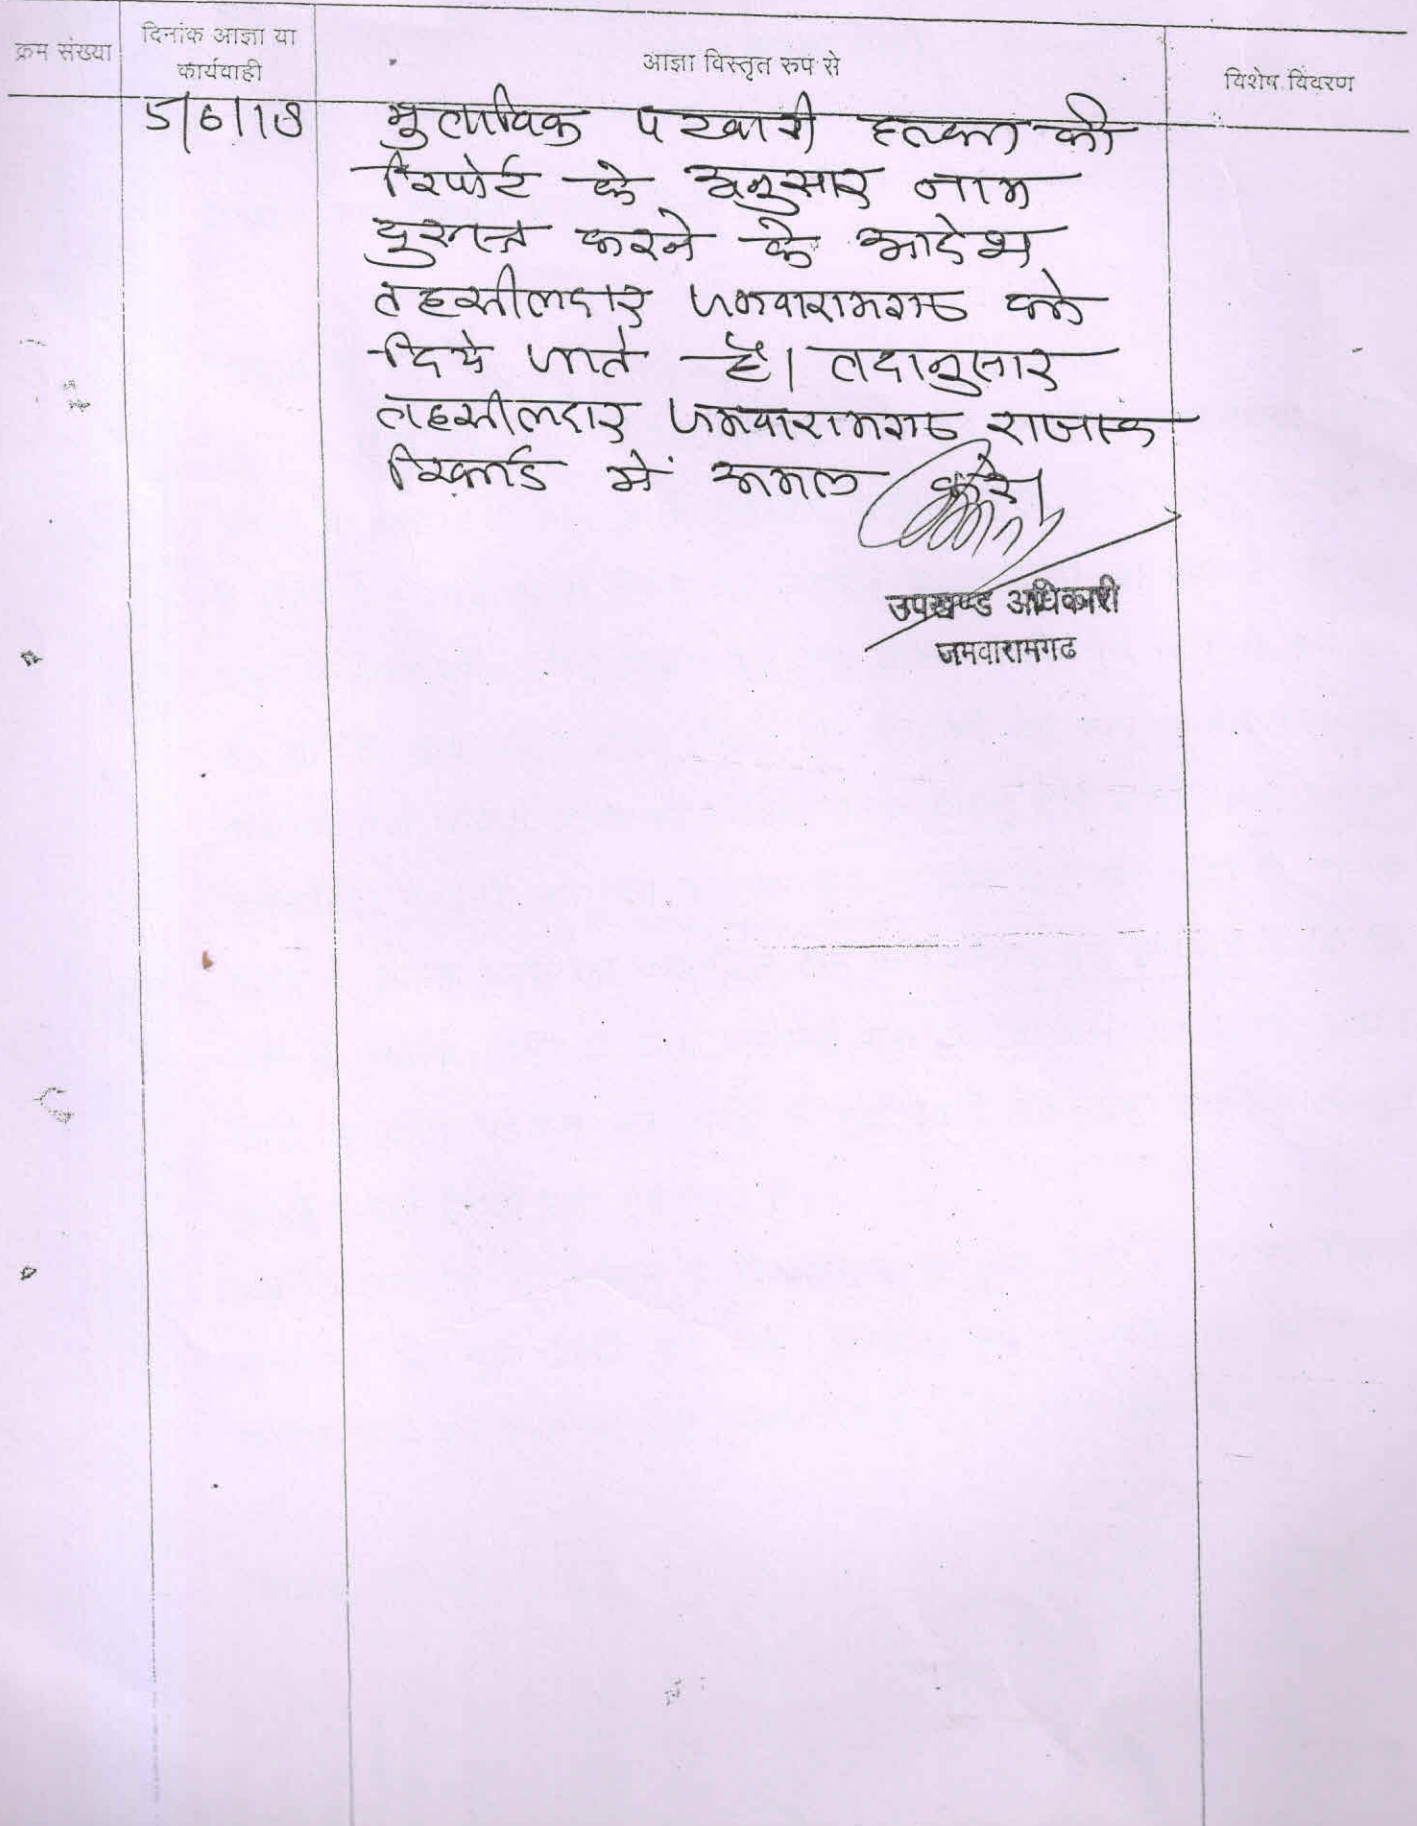 क्रम संख्या दिनांक आज्ञा या कार्यवाही आज्ञा विस्तृत रुप से विशेष विवरण
5/6/18 मुताबिक पटवारी हल्का की
रिपोर्ट के अनुसार नाम
दुरुस्त करने के आदेश
तहसीलदार जमवारामगढ को
दिये जाते है। तदानुसार
तहसीलदार जमवारामगढ राजस्व
रिकार्ड में अमल करे।
उपखण्ड अधिकारी
जमवारामगढ